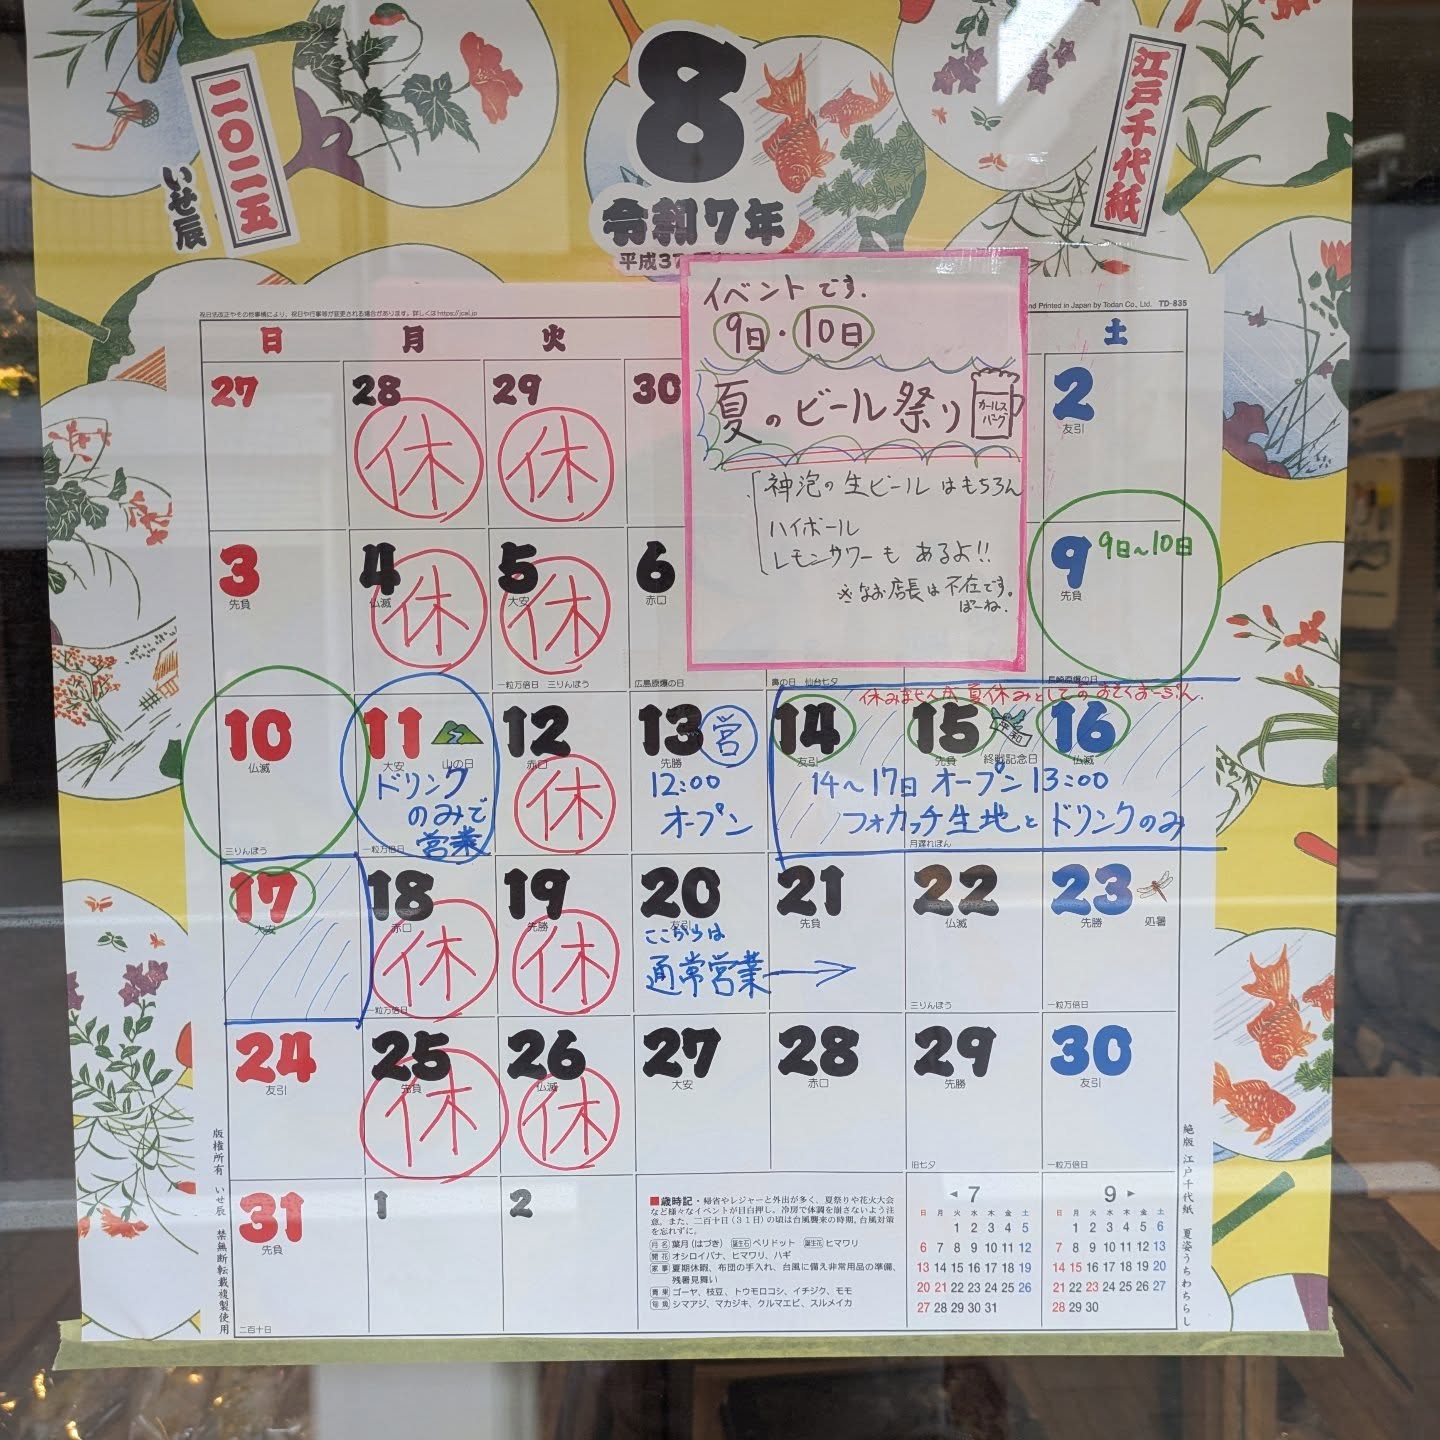 二〇二五
いせ辰
8
令和7年
平成37
江戸千代紙
祝日法改正やその他事情により、祝日や行事等が変更される場合があります。詳しくはhttps://jcal.jp
nd Printed in Japan by Todan Co., Ltd. TD-835
イベントです.
9日・10日
夏のビール祭り
カールスバーグ
神泡の生ビールはもちろん
ハイボール
レモンサワーも あるよ!!
※なお店長は不在です。
ばーね.
日 月 火 土
27 28 29 30 2
友引
休 休
3 4 5 6 9 9日~10日
先負 仏滅 大安 赤口 先負
休 休
一粒万倍日 三りんぼう 広島原爆の日 鼻の日 仙台七夕 長崎原爆の日
休みませんが 夏休みとしての
10 11 12 13 営 14 15 16
仏滅 大安 山の日 赤口 先勝 友引 先負 平和 終戦記念日 仏滅
ドリンク
のみで
営業
休
12:00
オープン
14~17日 オープン 13:00
フォカッチ生地と ドリンクのみ
三りんぼう 一粒万倍日 月遅れぼん
17 18 19 20 21 22 23
大安 赤口 先勝 友引 先負 仏滅 先勝 処暑
休 休
ここからは
通常営業→
一粒万倍日 三りんぼう 一粒万倍日
24 25 26 27 28 29 30
友引 先負 仏滅 大安 赤口 先勝 友引
休 休
旧七夕 一粒万倍日
31 1 2
先負
二百十日
■歳時記・帰省やレジャーと外出が多く、夏祭りや花火大会
など様々なイベントが目白押し。冷房で体調を崩さないよう注
意。また、二百十日(31日)の頃は台風襲来の時期。台風対策
を忘れずに。
月名 葉月(はづき) 誕生石 ペリドット 誕生花 ヒマワリ
開花 オシロイバナ、ヒマワリ、ハギ
家事 夏期休暇、布団の手入れ、台風に備え非常用品の準備、
残暑見舞い
青果 ゴーヤ、枝豆、トウモロコシ、イチジク、モモ
旬魚 シマアジ、マカジキ、クルマエビ、スルメイカ
◀ 7
日 月 火 水 木 金 土
1 2 3 4 5
6 7 8 9 10 11 12
13 14 15 16 17 18 19
20 21 22 23 24 25 26
27 28 29 30 31
9 ▶
日 月 火 水 木 金 土
1 2 3 4 5 6
7 8 9 10 11 12 13
14 15 16 17 18 19 20
21 22 23 24 25 26 27
28 29 30
版権所有 いせ辰 禁無断転載複製使用
絶版 江戸千代紙 夏姿うちわちらし